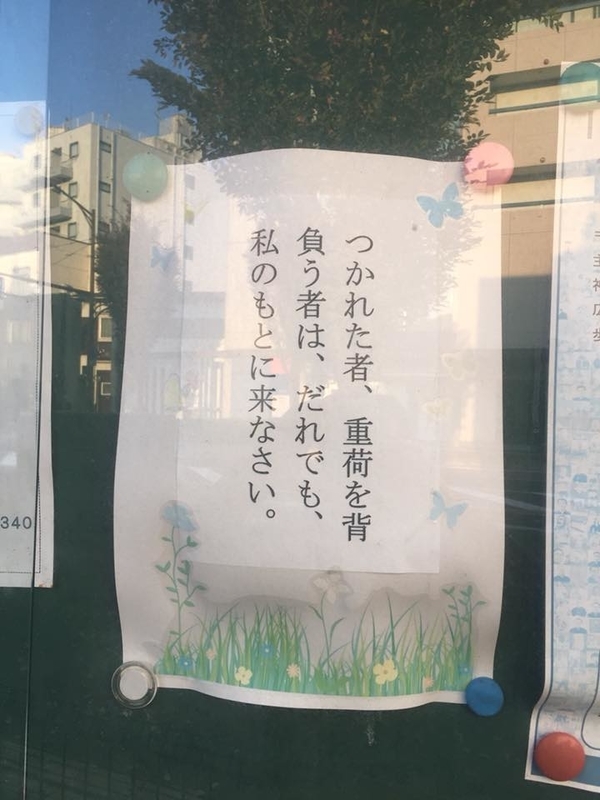 つかれた者、重荷を背
負う者は、だれでも、
私のもとに来なさい。
340